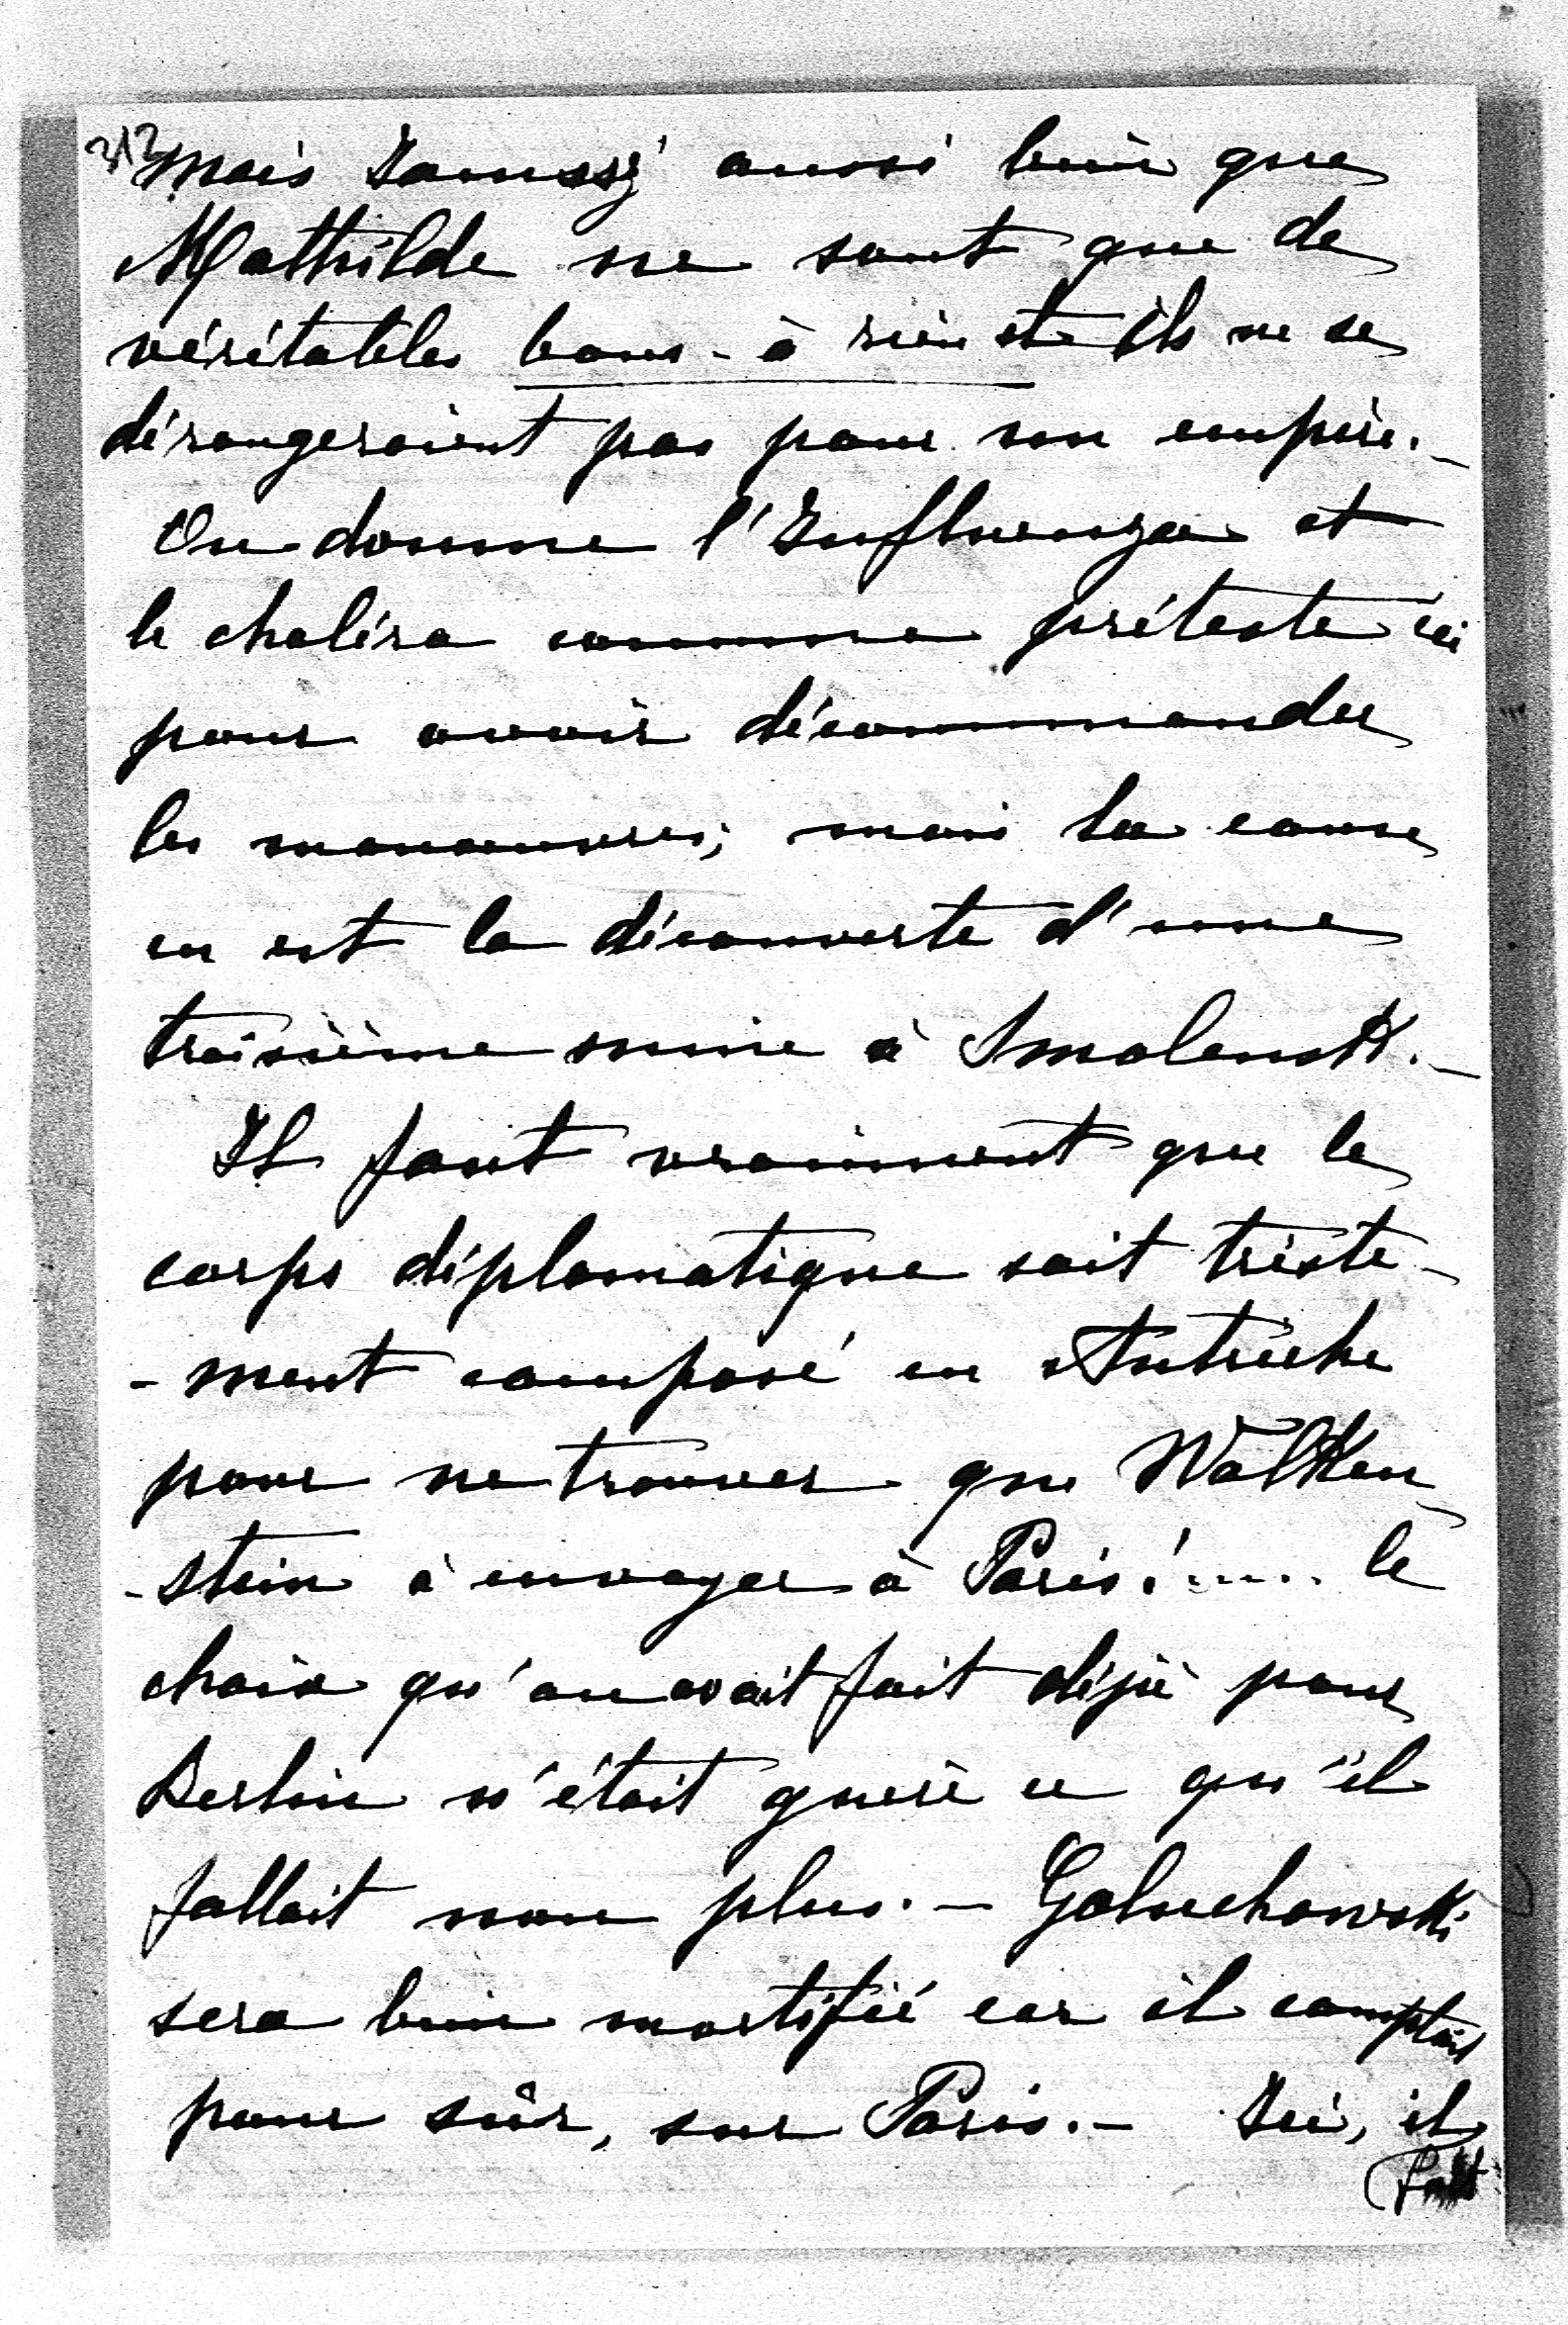 312
mais Janussj aussi bien que
Mathilde ne sont que de
véritables bons-à rien et ils ne se
dérangeraient pas pour un empire. _
On donne l'Influenza et
le choléra comme prétexte ici
pour avoir décommander
les manoeuvres; mais la cause
en est la découverte d'une
troisième mine à Smolensk. _
Il faut vraiment que le
corps diplomatique soit triste-
-ment composé en Autriche
pour ne trouver que Walken-
-stein à envoyer à Paris! ..... le
choix qu'on avait fait déjà pour
Berlin n'était guère ce qu'il
fallait non plus. - Goluchowski
sera bien mortifié car il comptait
pour sûr, sur Paris. - Ici, il